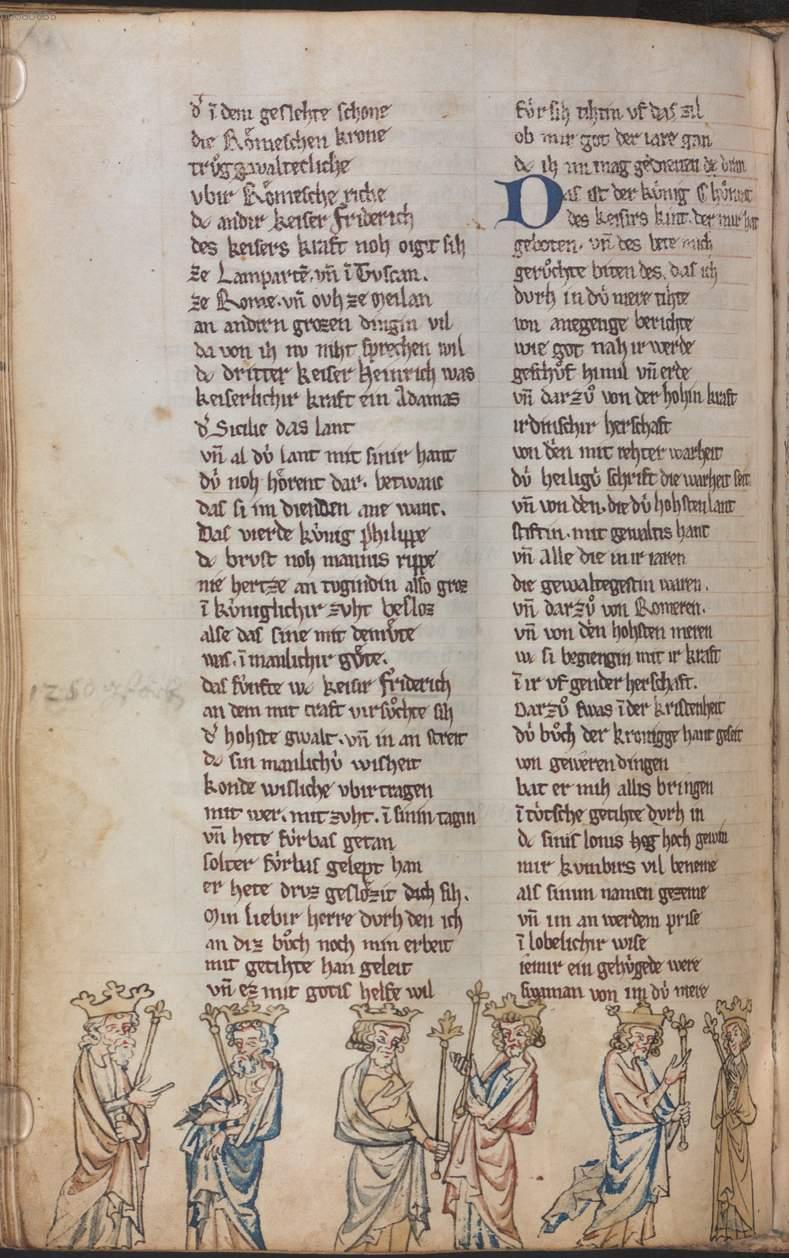 d' ī dem geslehte schone
die Rŏmeschen krone
trŭg gwaltecliche
vbir Rŏmesche riche
dc andir keiser Friderich
des keisers kraft noh oigit sih
ze Lampartē. vn̄ ī Tvscan.
ze Rome. vn̄ ovh ze Meilan
an andirn grozen dingin vil
da von ih nv niht sprechen wil
dc dritter keiser Heinrich was
keiserlichir kraft ein Adamas
d' Sicilie das lant
vn̄ al dv̓ lant mit sinir hant
dv̓ noh hŏrent dar. betwanc
das si im dienden ane wanc.
Das vierde kv̓nig philippe
dc brvst noh mannis rippe
nie hertze an tvgindin also groz
ī kv̓niglichir zvht besloz
alse das sine mit demv̊te
was. ī manlichir gv̊te.
das fv̓nfte wc keisir Friderich
an dem mit craft virsv̊chte sih
d' hohste gwalt. vn̄ in an streit
dc sin manlichv̓ wisheit
konde wisliche vbirtragen
mit wer. mit zvht. ī sinin tagin
vn̄ hete fv̓rbas getan
solter fv̓rbas gelept han
er hete drvz geslozit dich sih.
Min liebir herre dvrh den ich
an diz bv̊ch noch min erbeit
mit getihte han geleit
vn̄ ez mit gotis helfe wil
fv̓r sih tihtin vf das zil
ob mir got der iare gan
dc ih im mag gedienen dc dran
Das ist der kv̓nig Chv̊nrat
des keisirs kint. der mir hat
geboten. vn̄ des bete mich
gerv̊chte biten des. das ich
dvrh in dv̓ mere tihte
von anegenge berichte
wie got nah ir werde
geschv̊f himil vn̄ erde
vn̄ darzv̊ von der hohin kraft
irdinschir herschaft
von dēn mit rehter warheit
dv̓ heiligv̓ schrift die warheit seit
vn̄ von dēn. die dv̓ hohsten lant
stiftin. mit gewaltis hant
vn̄ alle die in ir iaren
die gewaltegestin waren.
vn̄ darzv̊ von Romeren.
vn̄ von dēn hohsten meren
wc si begiengin mit ir kraft
ī ir vf gender herschaft.
Darzv̊ swas ī der kristenheit
dv̓ bv̊ch der kronigge hant geseit
von gewēren dingen
bat er mih allis bringen
ī tv̓tsche getihte dvrh in
dc sinis lonis hoch gewin
mir kvmbirs vil beneme
als sinim namen gezeme
vn̄ im an werdem prise
ī lobelichir wise
iemir ein gehv̓gede were
swannan von im dv̓ mere